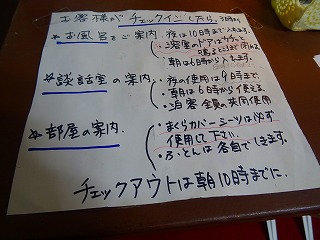 お客様が チェックインしたら、
★お風呂をご案内. 夜は10時まで入れます.
・浴室のドアはカチッと
鳴るところまで閉める
・朝は6時から入れます.
★談話室の案内.
・夜の使用は9時まで.
・朝は6時から使える.
・泊客全員の共同使用
★部屋の案内.
・まくらカバー シーツは必ず
使用して下さい.
・ふとんは各自でしきます.
チェックアウトは朝10時までに.